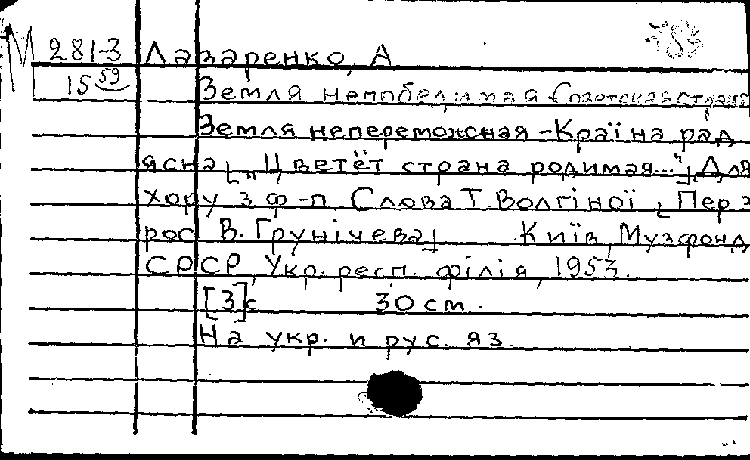 М 281-3 Лазаренко, А
15 53
Земля непобедимая Советская страна
Земля непереможная - Країна рад
ясна [„Цветёт страна родимая..."] Для
хору з ф-п. Слова Т. Волгіної [Пер. з
рос. В. Грунічева] Київ, Музфонд
СРСР, Укр. респ. філія, 1953.
[3]с 30 см.
На укр. и рус. яз.